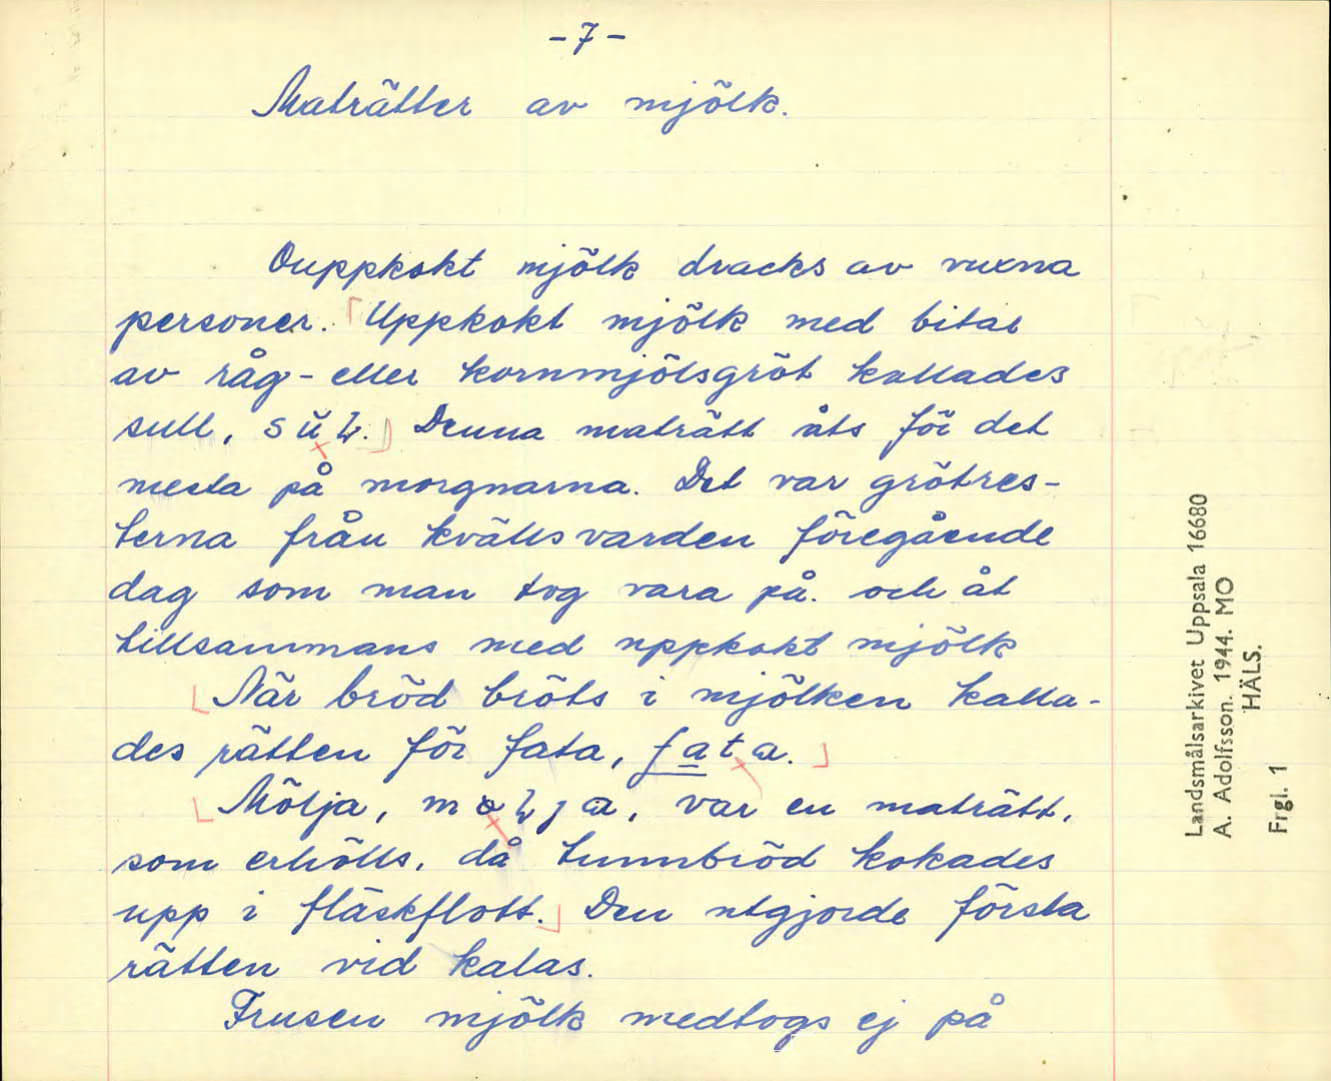 -7-
Maträtter av mjölk.
Ouppkokt mjölk dracks av vuxna
personer. Uppkokt mjölk med bitar
av råg- eller kornmjölsgröt kallades
sull, Denna maträtt åts för det
mesta på morgnarna. Det var grötres-
terna från kvällsvarden föregående
dag som man tog vara på. och åt
tillsammans med uppkokt mjölk
När bröd bröts i mjölken kalla-
des rätten för fata, fata.
Mölja, var en maträtt,
som erhölls, då tunnbröd kokades
upp i fläskflott. Den utgjorde första
rätten vid kalas.
Frusen mjölk medtogs ej på
Landsmålsarkivet Uppsala 16680
A. Adolfsson. 1944. MO
HÄLS.
Frgl. 1